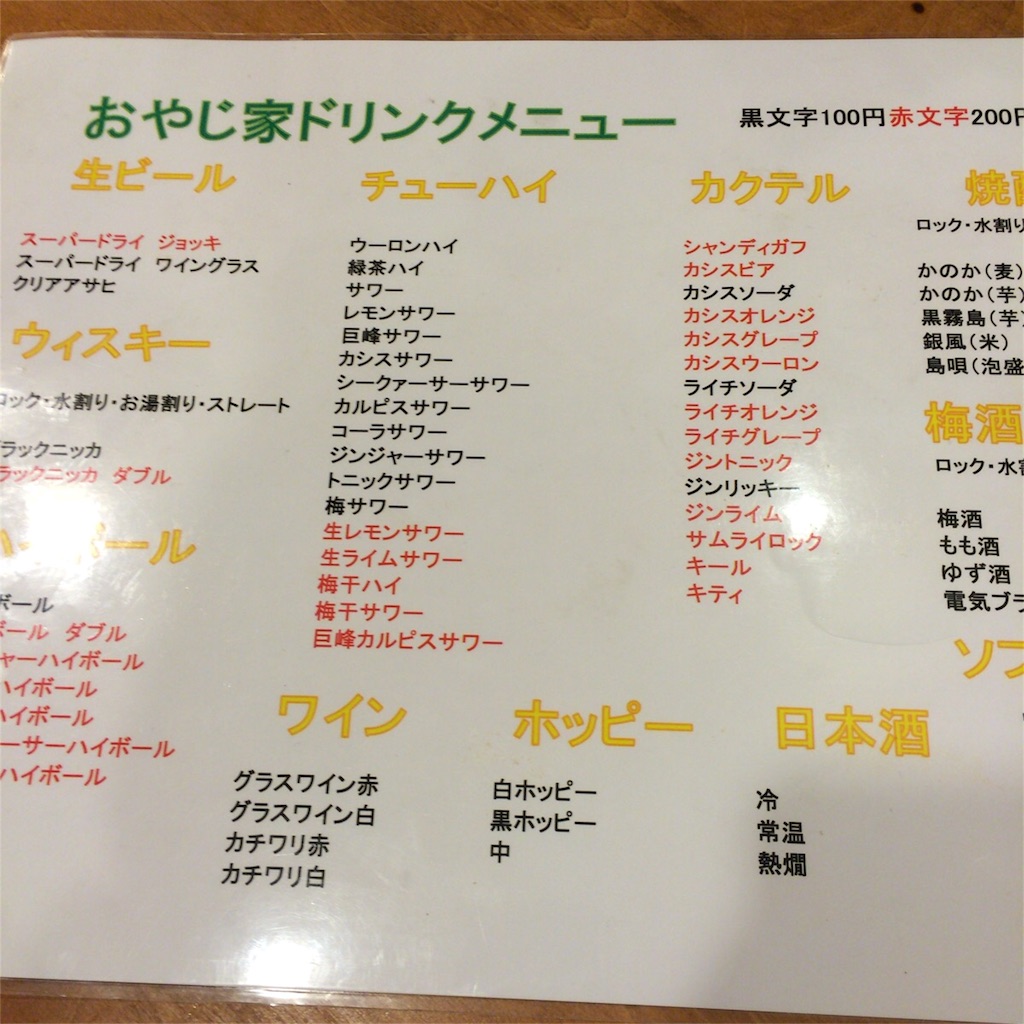 おやじ家ドリンクメニュー
黒文字100円赤文字200円
生ビール
スーパードライ ジョッキ
スーパードライ ワイングラス
クリアアサヒ
ウィスキー
ロック・水割り・お湯割り・ストレート
ラックニッカ
ラックニッカ ダブル
ハイボール
ボール
ボール ダブル
ャーハイボール
ハイボール
ハイボール
ーサーハイボール
ハイボール
チューハイ
ウーロンハイ
緑茶ハイ
サワー
レモンサワー
巨峰サワー
カシスサワー
シークァーサーサワー
カルピスサワー
コーラサワー
ジンジャーサワー
トニックサワー
梅サワー
生レモンサワー
生ライムサワー
梅干ハイ
梅干サワー
巨峰カルピスサワー
カクテル
シャンディガフ
カシスビア
カシスソーダ
カシスオレンジ
カシスグレープ
カシスウーロン
ライチソーダ
ライチオレンジ
ライチグレープ
ジントニック
ジンリッキー
ジンライム
サムライロック
キール
キティ
焼酎
ロック・水割り
かのか（麦）
かのか（芋）
黒霧島（芋）
銀風（米）
島唄（泡盛
梅酒
ロック・水割
梅酒
もも酒
ゆず酒
電気ブラ
ソフ
ワイン
グラスワイン赤
グラスワイン白
カチワリ赤
カチワリ白
ホッピー
白ホッピー
黒ホッピー
中
日本酒
冷
常温
熱燗